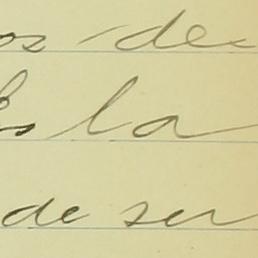 os de
Es la
de ser